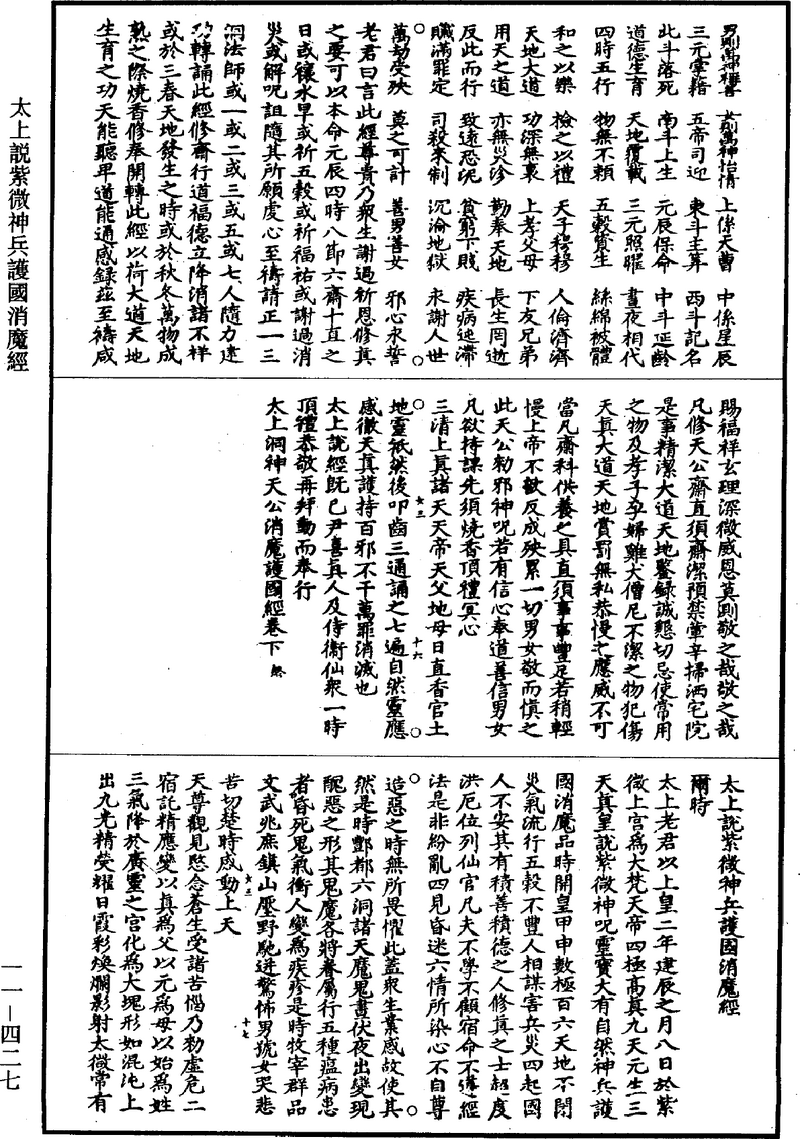 男則萬神稱善　女則萬神怡情　上係天曹　中係星辰
三元掌籍　五帝司迎　東斗主筭　西斗記名
此斗落死　南斗上生　元辰保命　中斗延齡
道德生育　天地覆載　三元照曜　晝夜相代
四時五行　物無不賴　五穀資生　絲綿被體
和之以樂　檢之以禮　天子穆穆　人倫濟濟
天地大道　功深無裏　上孝父母　下友兄弟
用天之道　亦無災沴　勤奉天地　長生罔逝
反此而行　致遠恐泥　貧窮下賤　疾病迍滯
贓滿罪定　司殺來制　沉淪地獄　永謝人世
萬劫受殃　莫之可計　善男善女　邪心永誓
老君曰言此經尊貴乃衆生謝過祈恩修真
之要可以本命元辰四時八節六齋十直之
日或禳水旱或祈五穀或祈福祐或謝過消
災或解呪詛隨其所願處心至禱請正一三
洞法師或一或二或三或五或七人隨力建
功轉誦此經修齋行道福德立降消諸不祥
或於三春天地發生之時或於秋冬萬物成
熟之際燒香修奉開轉此經以荷大道天地
生育之功天能聽卑道能通感錄茲至禱咸
賜福祥玄理深微威恩莫測敬之哉敬之哉
凡修天公齋直須齋潔預禁葷辛掃洒宅院
是事精潔大道天地鑒錄誠懇切忌使常用
之物及孝子孕婦雞犬僧尼不潔之物犯傷
天真大道天地賞罰無私恭慢之應威不可
當凡齋科供養之具直須事事豐足若稍輕
慢上帝不歆反成殃累一切男女敬而慎之
此天公勑邪神呪若有信心奉道善信男女
凡欲持課先須燒香頂禮冥心
三清上真諸天天帝天父地母日直香官土
地靈祇然後叩齒三通誦之七遍自然靈應
感徹天真護持百邪不干萬罪消滅也
太上說經既已尹喜真人及侍衛仙衆一時
頂禮恭敬再拜動而奉行
太上洞神天公消魔護國經卷下　終
女三　十六
太上說紫微神兵護國消魔經
爾時
太上老君以上皇二年建辰之月八日於紫
微上宮爲大梵天帝四極高真九天元生三
天真皇說紫微神呪靈寶大有自然神兵護
國消魔品時開皇甲申數極百六天地不閉
災氣流行五穀不豐人相謀害兵災四起國
人不安其有積善積德之人修真之士超度
洪厄位列仙官凡夫不學不顧宿命不遵經
法是非紛亂四見昏迷六情所染心不自尊
造惡之時無所畏懼此蓋衆生業感故使其
然是時酆都六洞諸天魔鬼晝伏夜出變現
醜惡之形其鬼魔各將眷屬行五種瘟病患
者昏死鬼氣衝人變爲疾疹是時牧宰群品
文武兆庶鎮山壓野馳迸驚怖男號女哭悲
苦切楚時感動上天
天尊觀見愍念蒼生受諸苦惱乃勑虛危二
宿託精應變以真爲父以元爲母以始爲姓
三氣降於廣靈之宮化爲大塊形如混沌上
出九光精熒耀日霞彩煥爛影射太微常有
女三　十七
太上説紫微神兵護國消魔經
一一－四二七